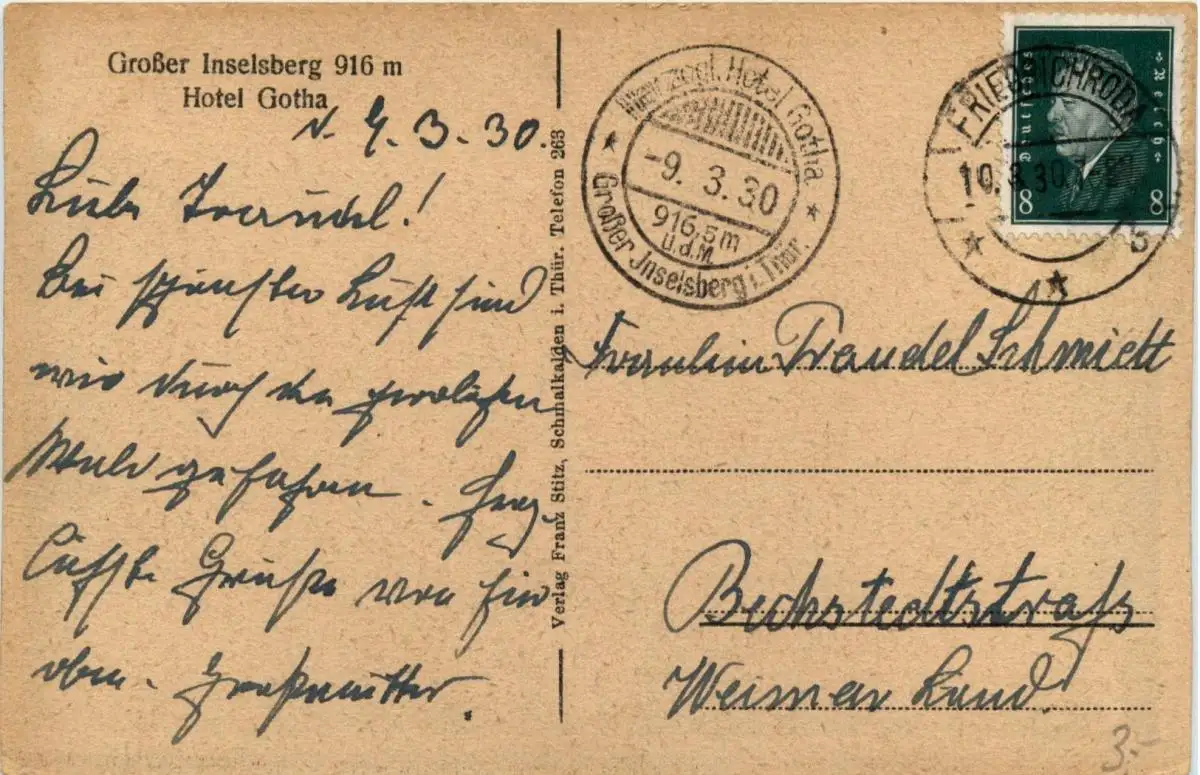 Großer Inselsberg 916 m
Hotel Gotha
d. 9. 3. 30.
Liebe Traudel!
Bei schönster Luft sind
wir durch den herrlichen
Wald gefahren. Herz-
lichste Grüße von hier
oben. Großmutter.
Verlag Franz Stitz, Schmalkalden i. Thür. Telefon 263
Herzogl. Hotel Gotha
-9. 3. 30
916,5 m
ü.d.M.
Großer Jnselsberg i. Thür.
FRIEDRICHRODA
10. 3. 30
b
Deutsches Reich
8 8
Fräulein Traudel Schmidt
Bechstedtstraß
Weimar Land.
3.-